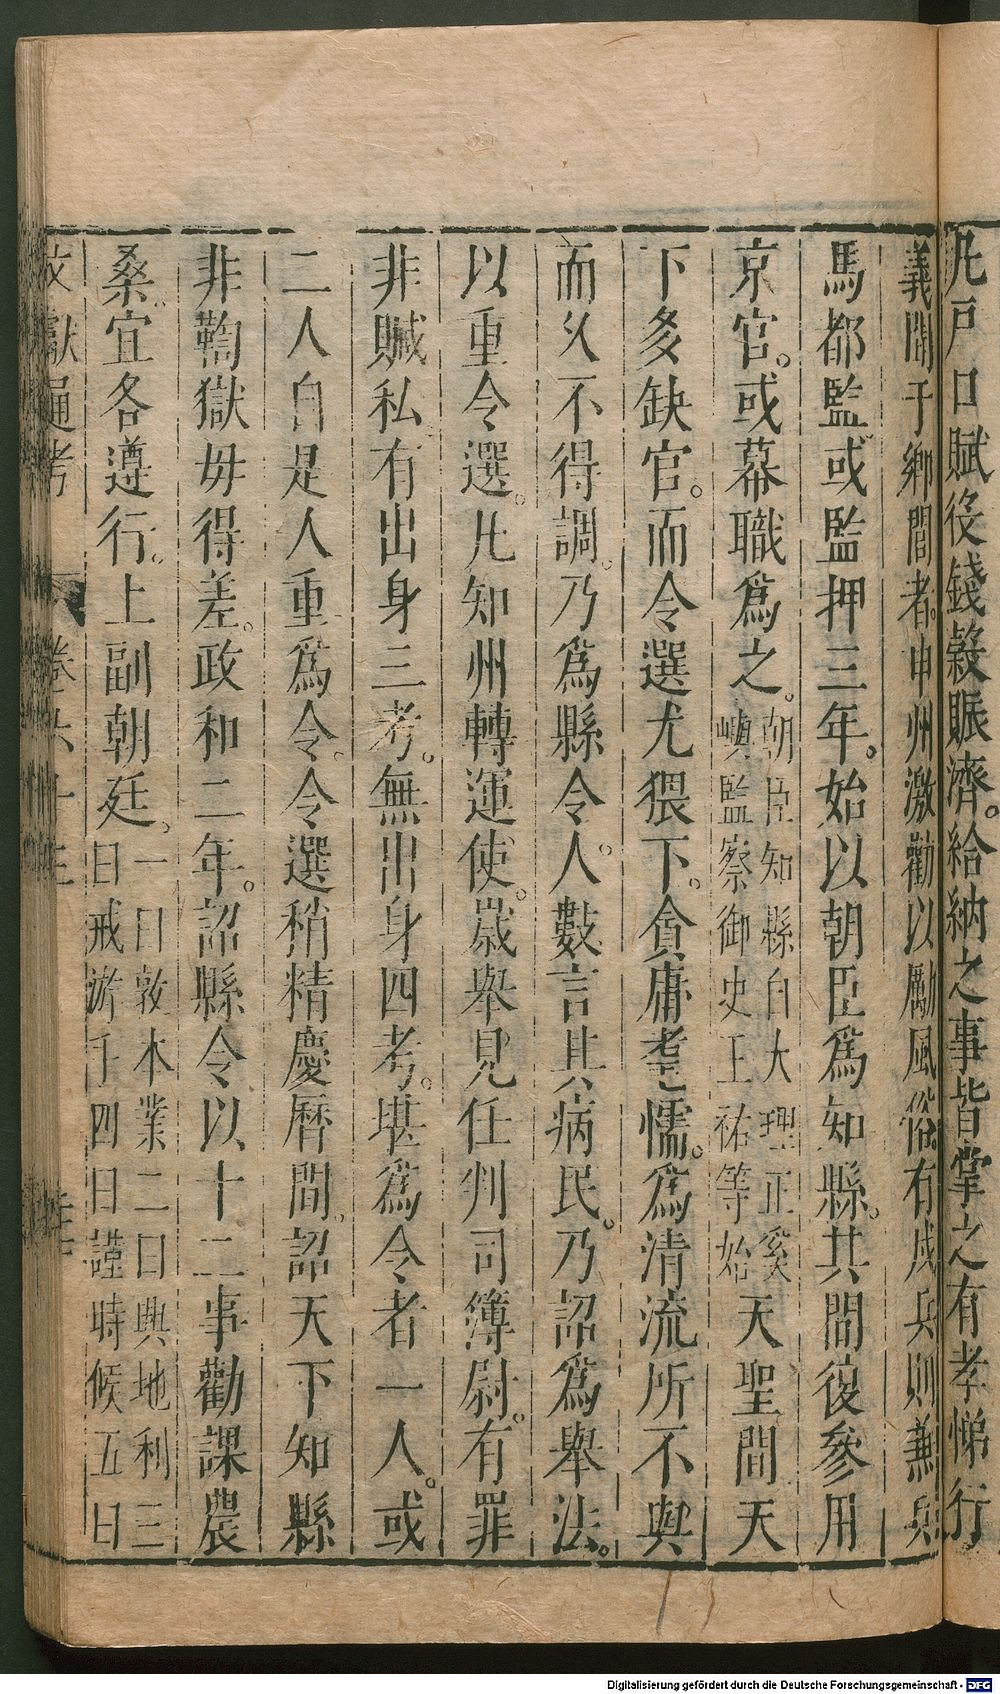 凡戸口賦役錢穀賑濟。給納之事皆掌之有孝悌行
義聞于鄉閭者。申州激勸以勵風俗有戍兵則兼兵
馬都監。或監押三年。始以朝臣爲知縣。其間復參用
京官。或幕職爲之。朝臣知縣自大理正奚
嶼監察御史王祐等始
天聖間天
下多缺官。而令選尤猥下。貪庸耄懦。爲清流所不與
而久不得調。乃爲縣令。人數言其病民。乃詔爲舉法。
以重令選。凡知州轉運使。歲舉見任判司簿尉。有罪
非贓私有出身三考。無出身四考。堪爲令者一人。或
二人自是人重爲令。令選稍精慶曆間。詔天下知縣
非鞫獄毋得差。政和二年。詔縣令以十二事勸課農
桑。宜各遵行。上副朝廷。一曰敦本業二曰興地利三
曰戒游手四曰謹時候五曰
文獻通考 卷六十三
Digitalisierung gefördert durch die Deutsche Forschungsgemeinschaft - DFG